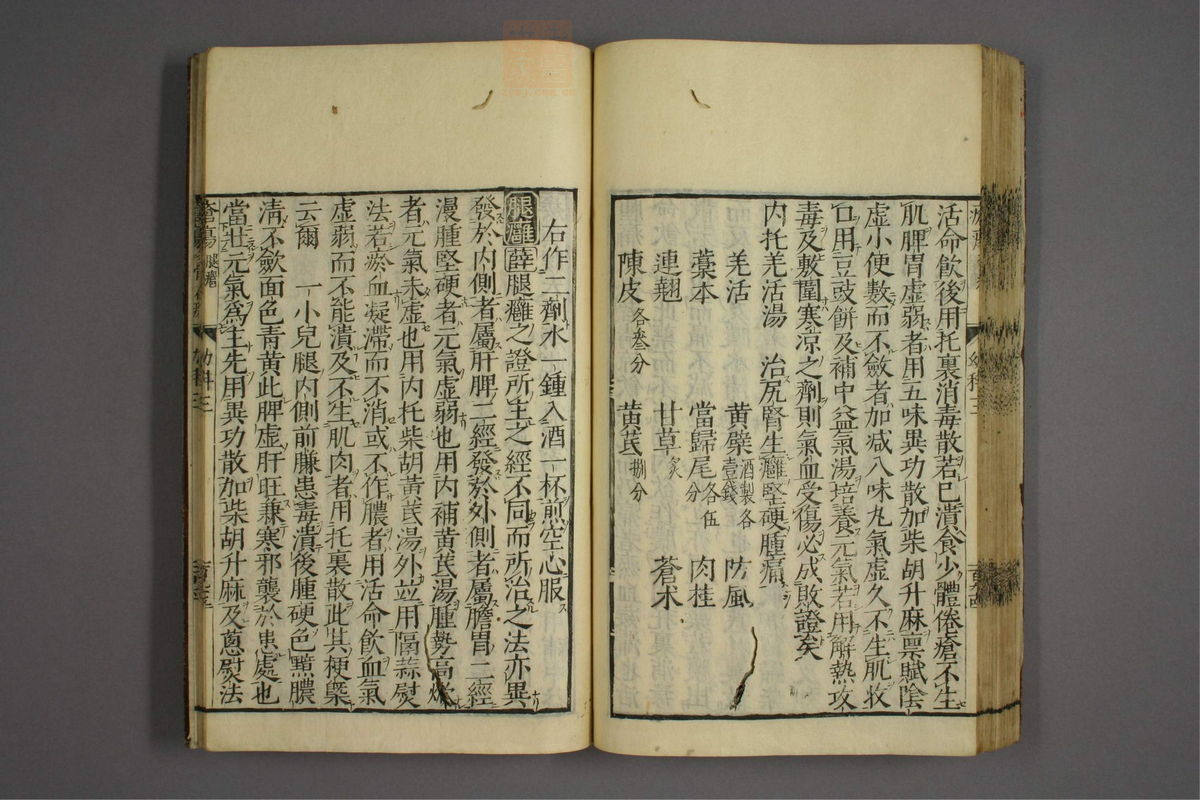 活命飲後用托裏消毒散若已潰食少體倦瘡不生
肌脾胃虛弱者用五味異功散加柴胡升麻禀賦陰
虛小便數而不斂者加減八味丸氣虛久不生肌收
口用豆豉餅及補中益氣湯培養元氣若用解熱攻
毒及敷圍寒凉之劑則氣血受傷必成敗證矣
内托羌活湯 治尻腎生癰堅硬腫痛
羌活 黃蘗酒製各壹錢 防風
藁本 當歸尾各伍分 肉桂
連翹 甘草炙 蒼朮
陳皮各叁分 黃芪捌分
右作二劑水一鍾入酒一杯煎空心服
腿癰 薛腿癰之證所主之經不同而所治之法亦異
發於内側者屬肝脾二經發於外側者屬膽胃二經
漫腫堅硬者元氣虛弱也用内補黃芪湯腫勢高焮
者元氣未虛也用内托柴胡黃芪湯外並用隔蒜熨
法若瘀血凝滯而不消或不作膿者用活命飲血氣
虛弱而不能潰及不生肌肉者用托裏散此其梗槩
云爾 一小兒腿内側前臁患毒潰後腫硬色黯膿
清不斂面色青黃此脾虛肝旺兼寒邪襲於患處也
當壯元氣爲主先用異功散加柴胡升麻及蔥熨法
瘡瘍 腿癰
幼科三